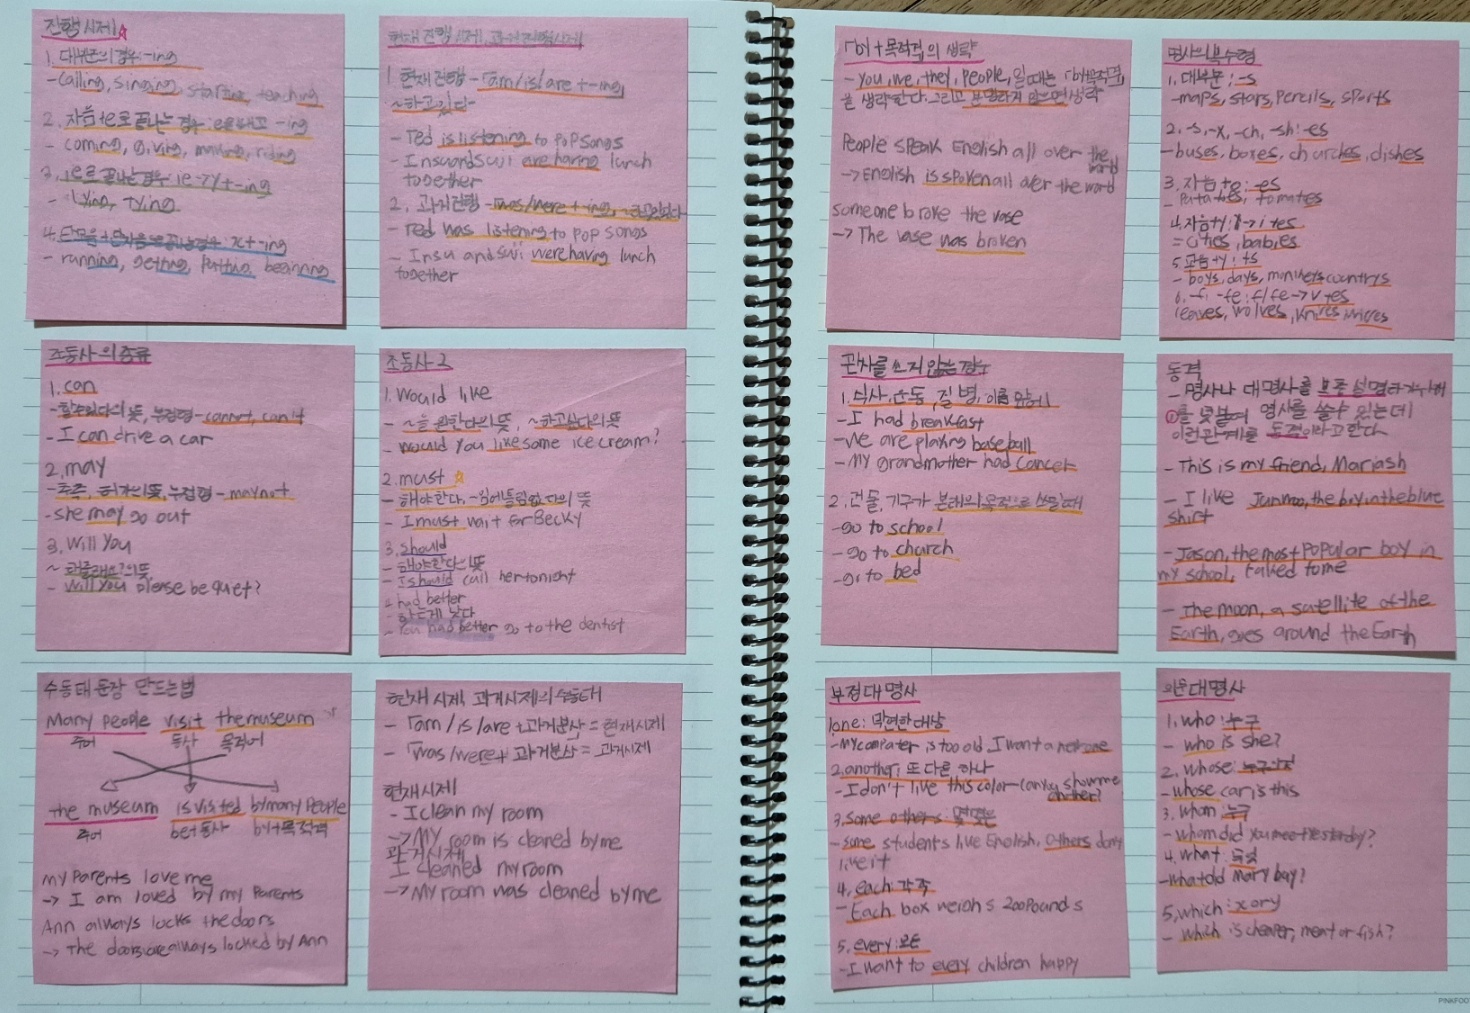 진행시제
1. 대부분의 경우: -ing
- calling, singing, starting, teaching
2. 자음+e로 끝나는 경우: e를 빼고 -ing
- coming, giving, making, riding
3. ie로 끝나는 경우: ie->y+-ing
- lying, tying
4. 단모음+단자음으로 끝나는 경우: x+-ing
- running, getting, putting, beginning
현재 진행 시제, 과거 진행 시제
1. 현재진행 - am/is/are +-ing,
~하고 있다-
- Ted is listening to pop songs
- Insu and Suji are having lunch
together
2. 과거진행 - was/were +-ing,
- Ted was listening to pop songs
- Insu and Suji were having lunch
together
조동사의 종류
1. can
- 할 수 있다의 뜻, 부정형 - cannot, can't
- I can drive a car
2. may
- 추측, 허가의 뜻, 부정형 - may not
- she may go out
3. Will you
~ 해줄래요?의 뜻
- Will you please be quiet?
조동사 2
1. Would like
- ~을 원한다의 뜻, ~하고싶다의 뜻
- Would you like some ice cream?
2. must
- 해야한다, -임에 틀림없다의 뜻
- I must wait for Becky
3. should
- 해야한다의 뜻
- I should call her tonight
had better
- 하는게 낫다
- You had better go to the dentist
수동태 문장 만드는법
Many people visit the museum
주어 동사 목적어
the museum is visited by many people
주어 be+동사 by+목적격
my parents love me
-> I am loved by my parents
Ann always locks the doors
-> The doors are always locked by Ann
현재 시제 과거시제의 수동태
- am/is/are +과거분사 = 현재시제
- was/were+ 과거분사 = 과거시제
현재시제
- I clean my room
-> My room is cleaned by me
과거시제
I cleaned my room
-> My room was cleaned by me
by+목적격의 생략
- you, we, they, people, 일 때는 by목적격
을 생략한다. 그리고 분명하지 않으면 생략
People speak English all over the
world
-> English is spoken all over the world
someone broke the vase
-> The vase was broken
명사의 복수형
1. 대부분: -s
- maps, stars, pencils, sports
2. -s, -x, -ch, -sh: -es
- buses, boxes, churches, dishes
3. 자음+o: -es
- Potatoes, tomatoes
4. 자음+y: y->i+es
= cities, babies
5. 모음+y: +s
- boys, days, monkeys
6. -f, -fe: f/fe->v+es
leaves, wolves, knives
관사를 쓰지 않는 경우
1. 식사, 운동, 질병, 이름 앞에
- I had breakfast
- We are playing baseball
- My grandmother had cancer
2. 건물, 기구가 본래의 목적으로 쓰일때
- go to school
- go to church
- go to bed
동격
- 명사나 대명사를 보충 설명하기 위해
를 덧붙여 명사를 쓸수 있는데
이런관계를 동격이라고 한다
- This is my friend, Mariash
- I like Junmoo, the boy in the blue
shirt
- Jason, the most popular boy in
my school, talked to me
- The moon, a satellite of the
Earth, goes around the Earth
부정대명사
1one: 막연한 대상
- My computer is too old I want a new one
2. another: 또 다른 하나
- I don't like this color can you show me
another?
3. some others:
- some students like English, others don't
like it
4. each: 각각
- Each box weighs 200 pounds
5. every: 모든
- I want to every children happy
의문대명사
1. who: 누구
- who is she?
2. whose: 누구의 것
- whose car is this
3. whom: 누구
- whom did you meet yesterday?
4. what: 무엇
- what did Mary buy?
5, which: x or y
- which is cheaper, meat or fish?